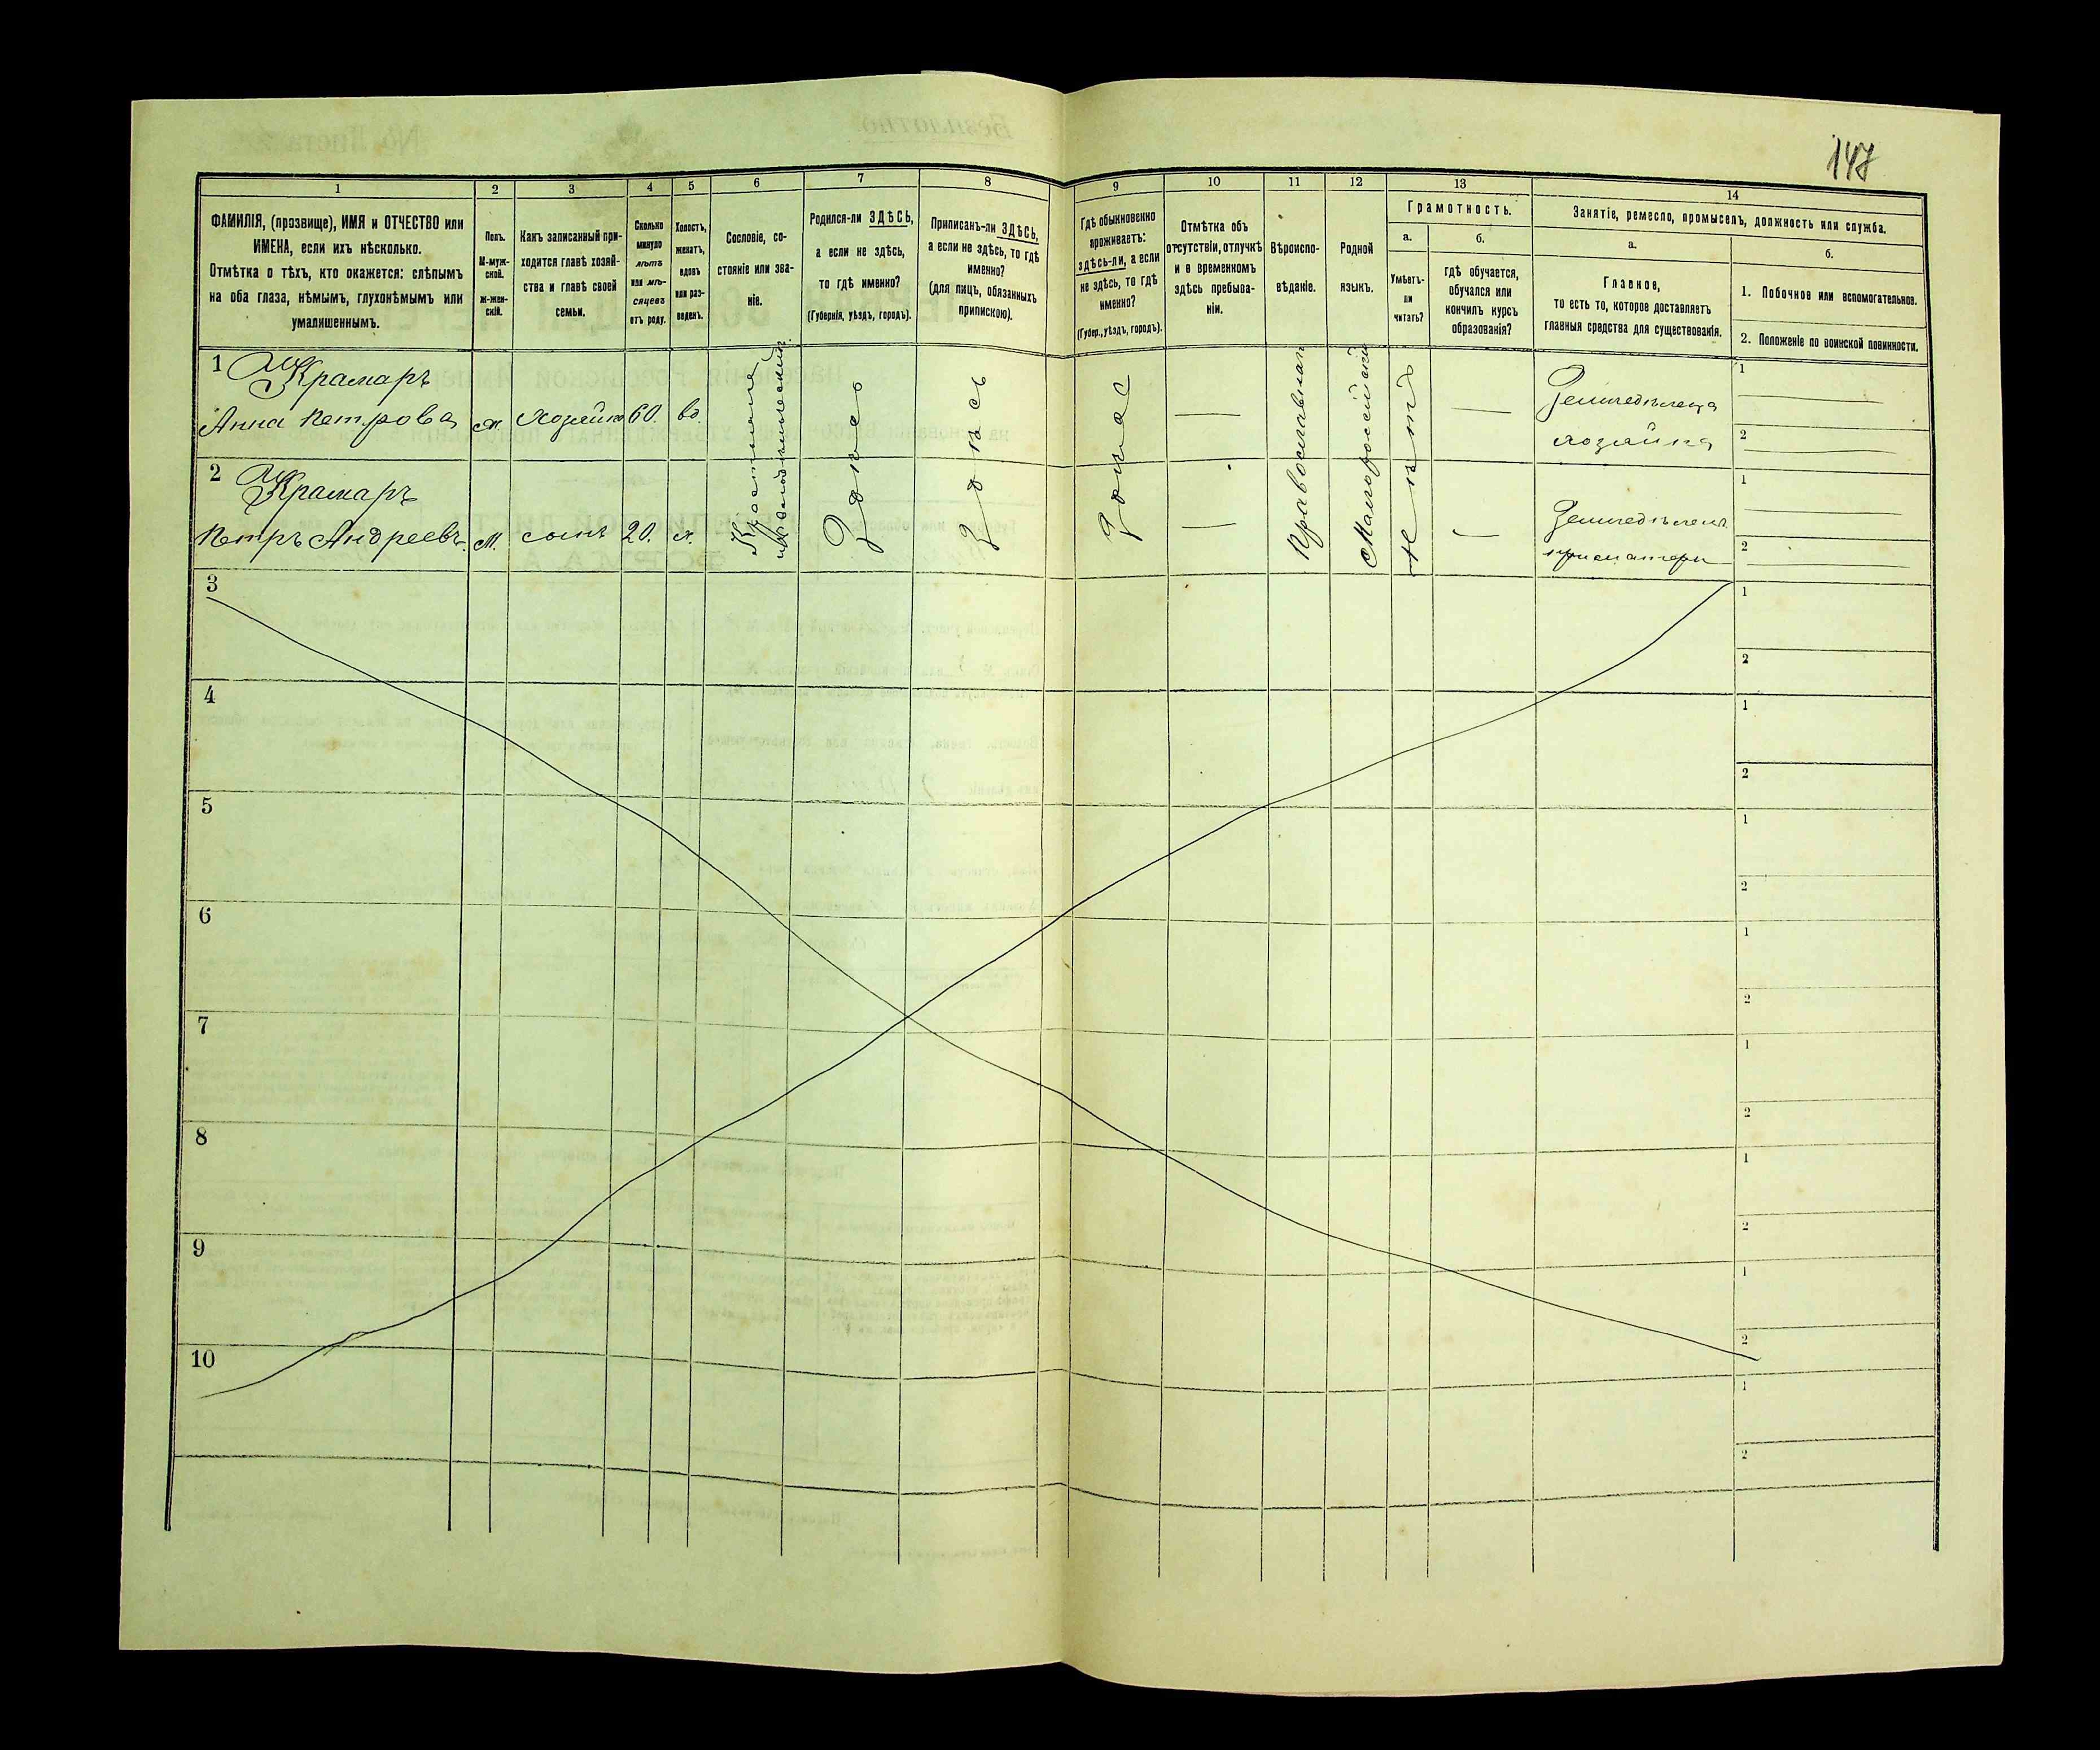 147
1 2 3 4 5 6 7 8 9 10 11 12 13 14
ФАМИЛІЯ, (прозвище), ИМЯ и ОТЧЕСТВО или
ИМЕНА, если ихъ нѣсколько.
Отмѣтка о тѣхъ, кто окажется: слѣпымъ
на оба глаза, нѣмымъ, глухонѣмымъ или
умалишеннымъ.
Полъ.
М-муж-
ской.
ж-жен-
скій.
Какъ записанный при-
ходится главѣ хозяй-
ства и главѣ своей
семьи.
Сколько
минуло
лѣтъ
или мѣ-
сяцевъ
отъ роду.
Холостъ,
женатъ,
вдовъ
или раз-
веденъ.
Сословіе, со-
стояніе или зва-
ніе.
Родился-ли ЗДѢСЬ,
а если не здѣсь,
то гдѣ именно?
(Губернія, уѣздъ, городъ).
Приписанъ-ли ЗДѢСЬ,
а если не здѣсь, то гдѣ
именно?
(для лицъ, обязанныхъ
припискою).
Гдѣ обыкновенно
проживаетъ:
здѣсь-ли, а если
не здѣсь, то гдѣ
именно?
(Губер., уѣздъ, городъ).
Отмѣтка объ
отсутствіи, отлучкѣ
и о временномъ
здѣсь пребыва-
ніи.
Вѣроиспо-
вѣданіе.
Родной
языкъ.
Грамотность.
а.
Умѣетъ-
ли
читать?
б.
гдѣ обучается,
обучался или
кончилъ курсъ
образованія?
Занятіе, ремесло, промыселъ, должность или служба.
а.
Главное,
то есть то, которое доставляетъ
главныя средства для существованія.
б.
1. Побочное или вспомогательное.
2. Положеніе по воинской повинности.
1 Крамаръ
Анна Петрова ж. Хозяйка 60. вд.
Земледѣлеца
хозяйка
1
2
2 Крамаръ
Петръ Андреевъ. М. сынъ 20. х.
Земледѣлецъ
при матери
1
2
Крестьяне
Здѣсь
Здѣсь
Здѣсь
Православная
Малороссійскій
Нѣтъ
3 1
2
4 1
2
5 1
2
6 1
2
7 1
2
8 1
2
9 1
2
10 1
2